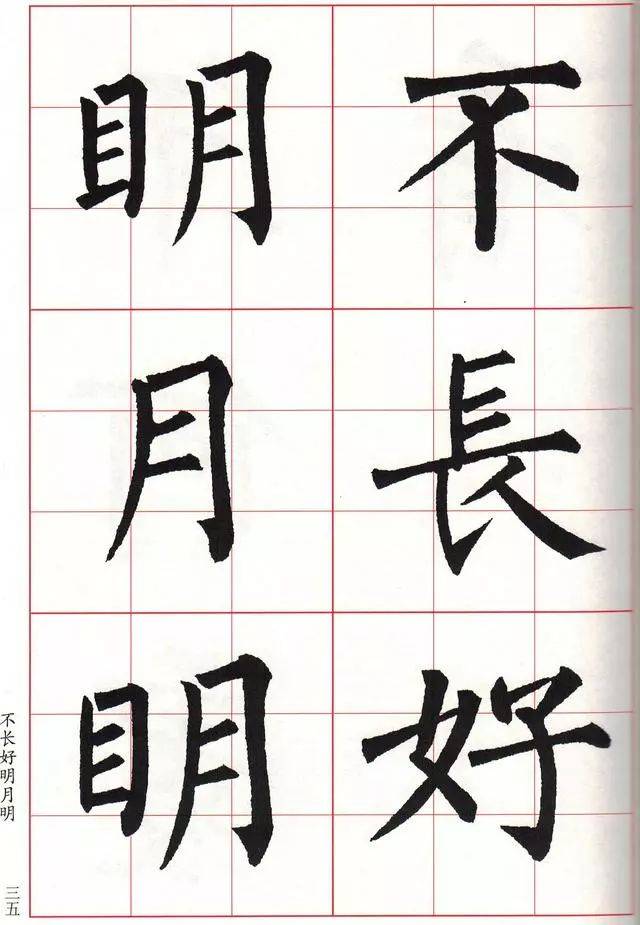 不長好
明月明
不长好明月明
三五